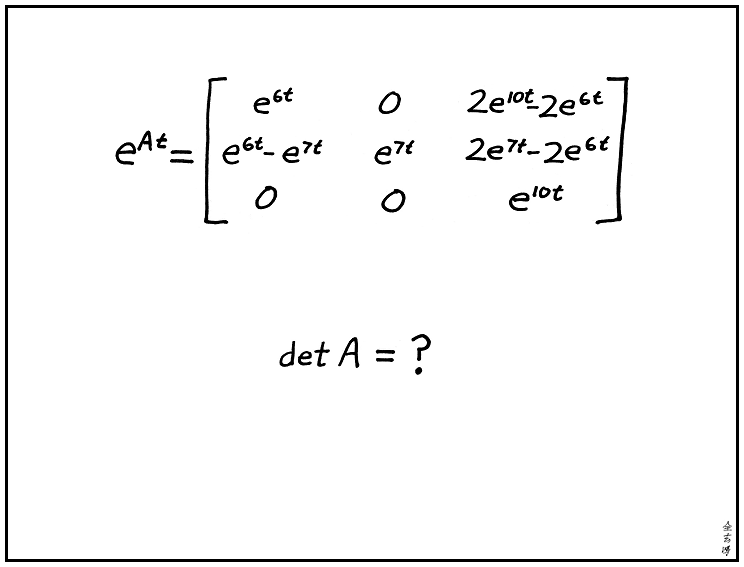 e^{At} = [ e^{6t} 0 2e^{10t}-2e^{6t}
e^{6t}-e^{7t} e^{7t} 2e^{7t}-2e^{6t}
0 0 e^{10t} ]
det A = ?